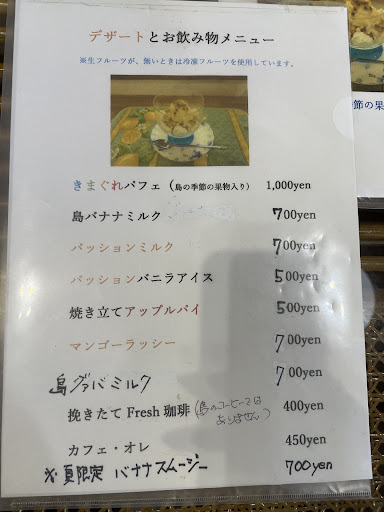 デザートとお飲み物メニュー
※生フルーツが、無いときは冷凍フルーツを使用しています。
きまぐれパフェ（島の季節の果物入り） 1,000yen
島バナナミルク 700yen
パッションミルク 700yen
パッションバニラアイス 500yen
焼き立てアップルパイ 500yen
マンゴーラッシー 700yen
島グァバミルク 700yen
挽きたてFresh珈琲(島のコーヒーではありません) 400yen
カフェ・オレ 450yen
※夏限定 バナナスムージー 700yen
節の果